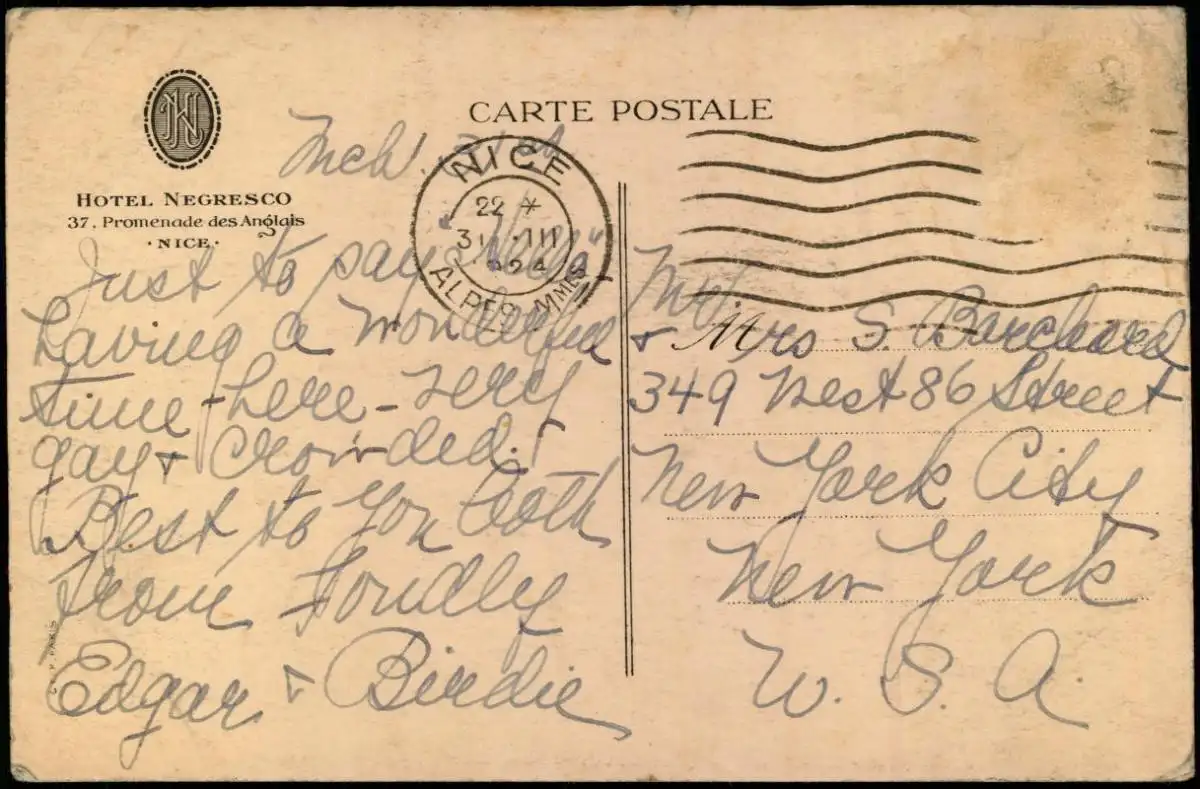 CARTE POSTALE
HN
HOTEL NEGRESCO
37, Promenade des Anglais
· NICE ·
NICE
22 *
31 III
924
ALPES MMES
Mch. 31st
Just to say "Hello"
having a wonderful
time here - very
gay & crowded.
Best to you both
from Fondly
Edgar & Birdie
Mr
& Mrs S. Barchard
349 West 86 Street
New York City
New York
U. S. A.